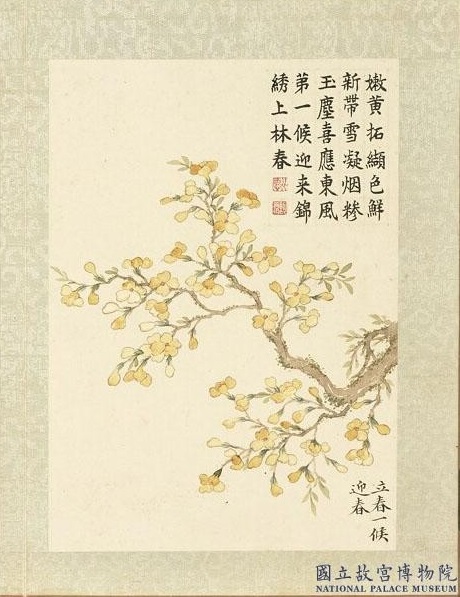 嫩黄拓纈色鮮
新帶雪凝烟糝
玉塵喜應東風
第一候迎来錦
綉上林春
立春一候
迎春
國立故宮博物院
NATIONAL PALACE MUSEUM